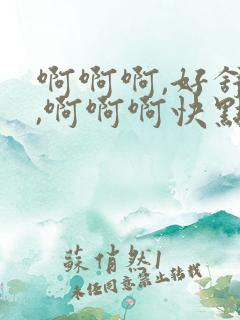 啊啊啊,好舒
,啊啊啊快點
蘇俏然1
未经同意禁止转载